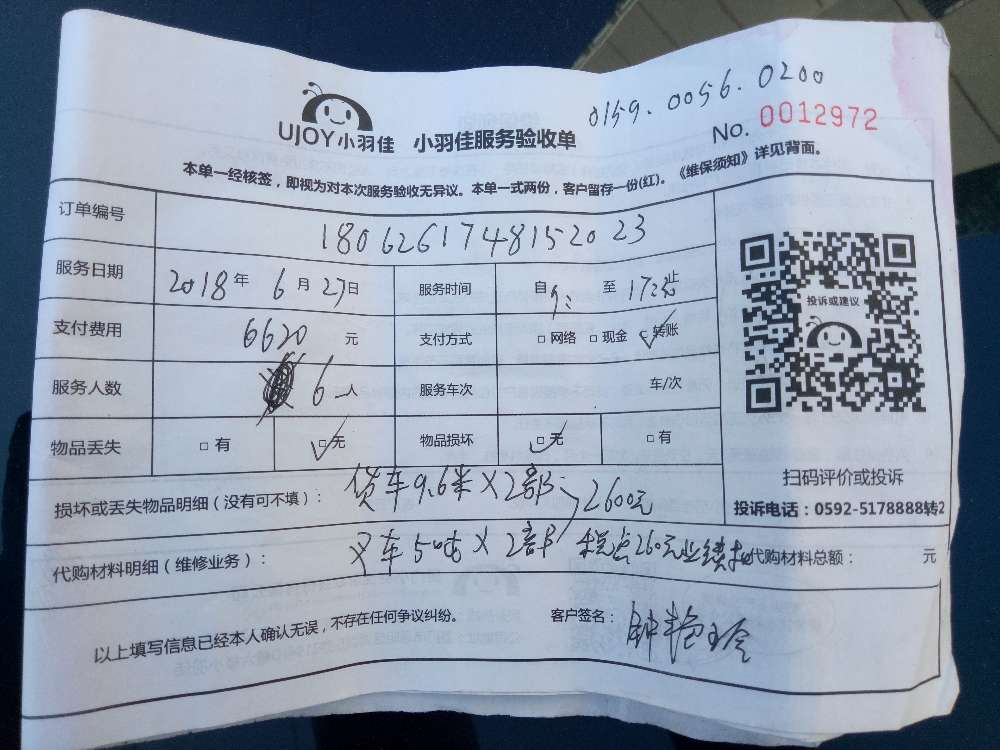 0159.0056.0200
UJOY小羽佳 小羽佳服务验收单 No. 0012972
本单一经核签，即视为对本次服务验收无异议。本单一式两份，客户留存一份(红)。《维保须知》详见背面。
订单编号 18062617481520 23
服务日期 2018年 6月27日 服务时间 自 9: 至 17: 止
支付费用 6620 元 支付方式 □网络 □现金 □转账
服务人数 6人 服务车次 车/次
物品丢失 □有 □无 物品损坏 □无 □有
投诉或建议
扫码评价或投诉
投诉电话：0592-5178888转2
损坏或丢失物品明细（没有可不填）： 货车9.6米×2部 2600元
代购材料明细（维修业务）： 叉车5吨×2部 税点260元业绩 代购材料总额： 元
以上填写信息已经本人确认无误，不存在任何争议纠纷。 客户签名：